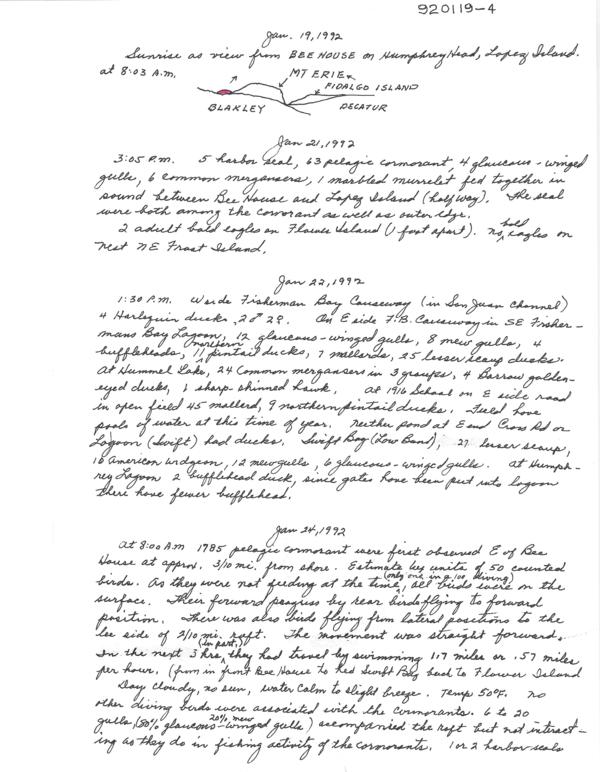 920119-4
Jan. 19, 1992
Sunrise as view from BEE HOUSE on Humphrey Head, Lopez Island.
at 8:03 A.M.
MT ERIE
FIDALGO ISLAND
BLAKLEY
DECATUR
Jan 21, 1992
3:05 P.M. 5 harbor seal, 63 pelagic cormorant, 4 glaucous-winged
gulls, 6 common mergansers, 1 marbled murrelet fed together in
sound between Bee House and Lopez Island (half way). The seal
were both among the cormorant as well as outer edge.
2 adult bald eagles on Flower Island (1 foot apart). no bald eagles on
nest NE Frost Island.
Jan 22, 1992
1:30 P.M. W side Fisherman Bay Causeway (in San Juan Channel)
4 Harlequin ducks, 2♂ 2♀. On E side F.B. Causeway in SE Fisher-
mans Bay Lagoon, 12 glaucous-winged gulls, 8 mew gulls, 4
buffleheads, 11 northern pintail ducks, 7 mallards, 25 lesser scaup ducks.
At Hummel Lake, 24 Common mergansers in 3 groups, 4 Barrow golden-
eyed ducks, 1 sharp-shinned hawk. At 1916 School on E side road
in open field 45 mallard, 9 northern pintail ducks. Field have
pools of water at this time of year. Neither pond at E end Cross Rd or
Lagoon (Swift) had ducks. Swift Bay (Low Band), 27 lesser scaup,
16 american widgeon, 12 mew gulls, 6 glaucous-winged gulls. At Humph-
rey Lagoon 2 bufflehead duck, since gates have been put into lagoon
there have fewer bufflehead.
Jan 24, 1992
At 8:00 AM 1785 pelagic cormorant were first observed E of Bee
House at approx. 3/10 mi. from shore. Estimate by units of 50 counted
birds. As they were not feeding at the time, (only one in a 100 diving) all birds were on the
surface. Their forward progress by rear birds flying to forward
position. There was also birds flying from lateral positions to the
lee side of 2/10 mi. raft. The movement was straight forward.
In the next 3 hrs, (in part,) they had travel by swimming 1.7 miles or .57 miles
per hour. (from in front Bee House to Red Swift Bay back to Flower Island
Day cloudy, no sun, water calm to slight breeze. Temp 50°F. no
other diving birds were associated with the cormorants. 6 to 20
gulls, (80% glaucous-winged gulls) 20% mew accompanied the raft but not interact-
ing as they do in fishing activity of the cormorants. 1 or 2 harbor seals